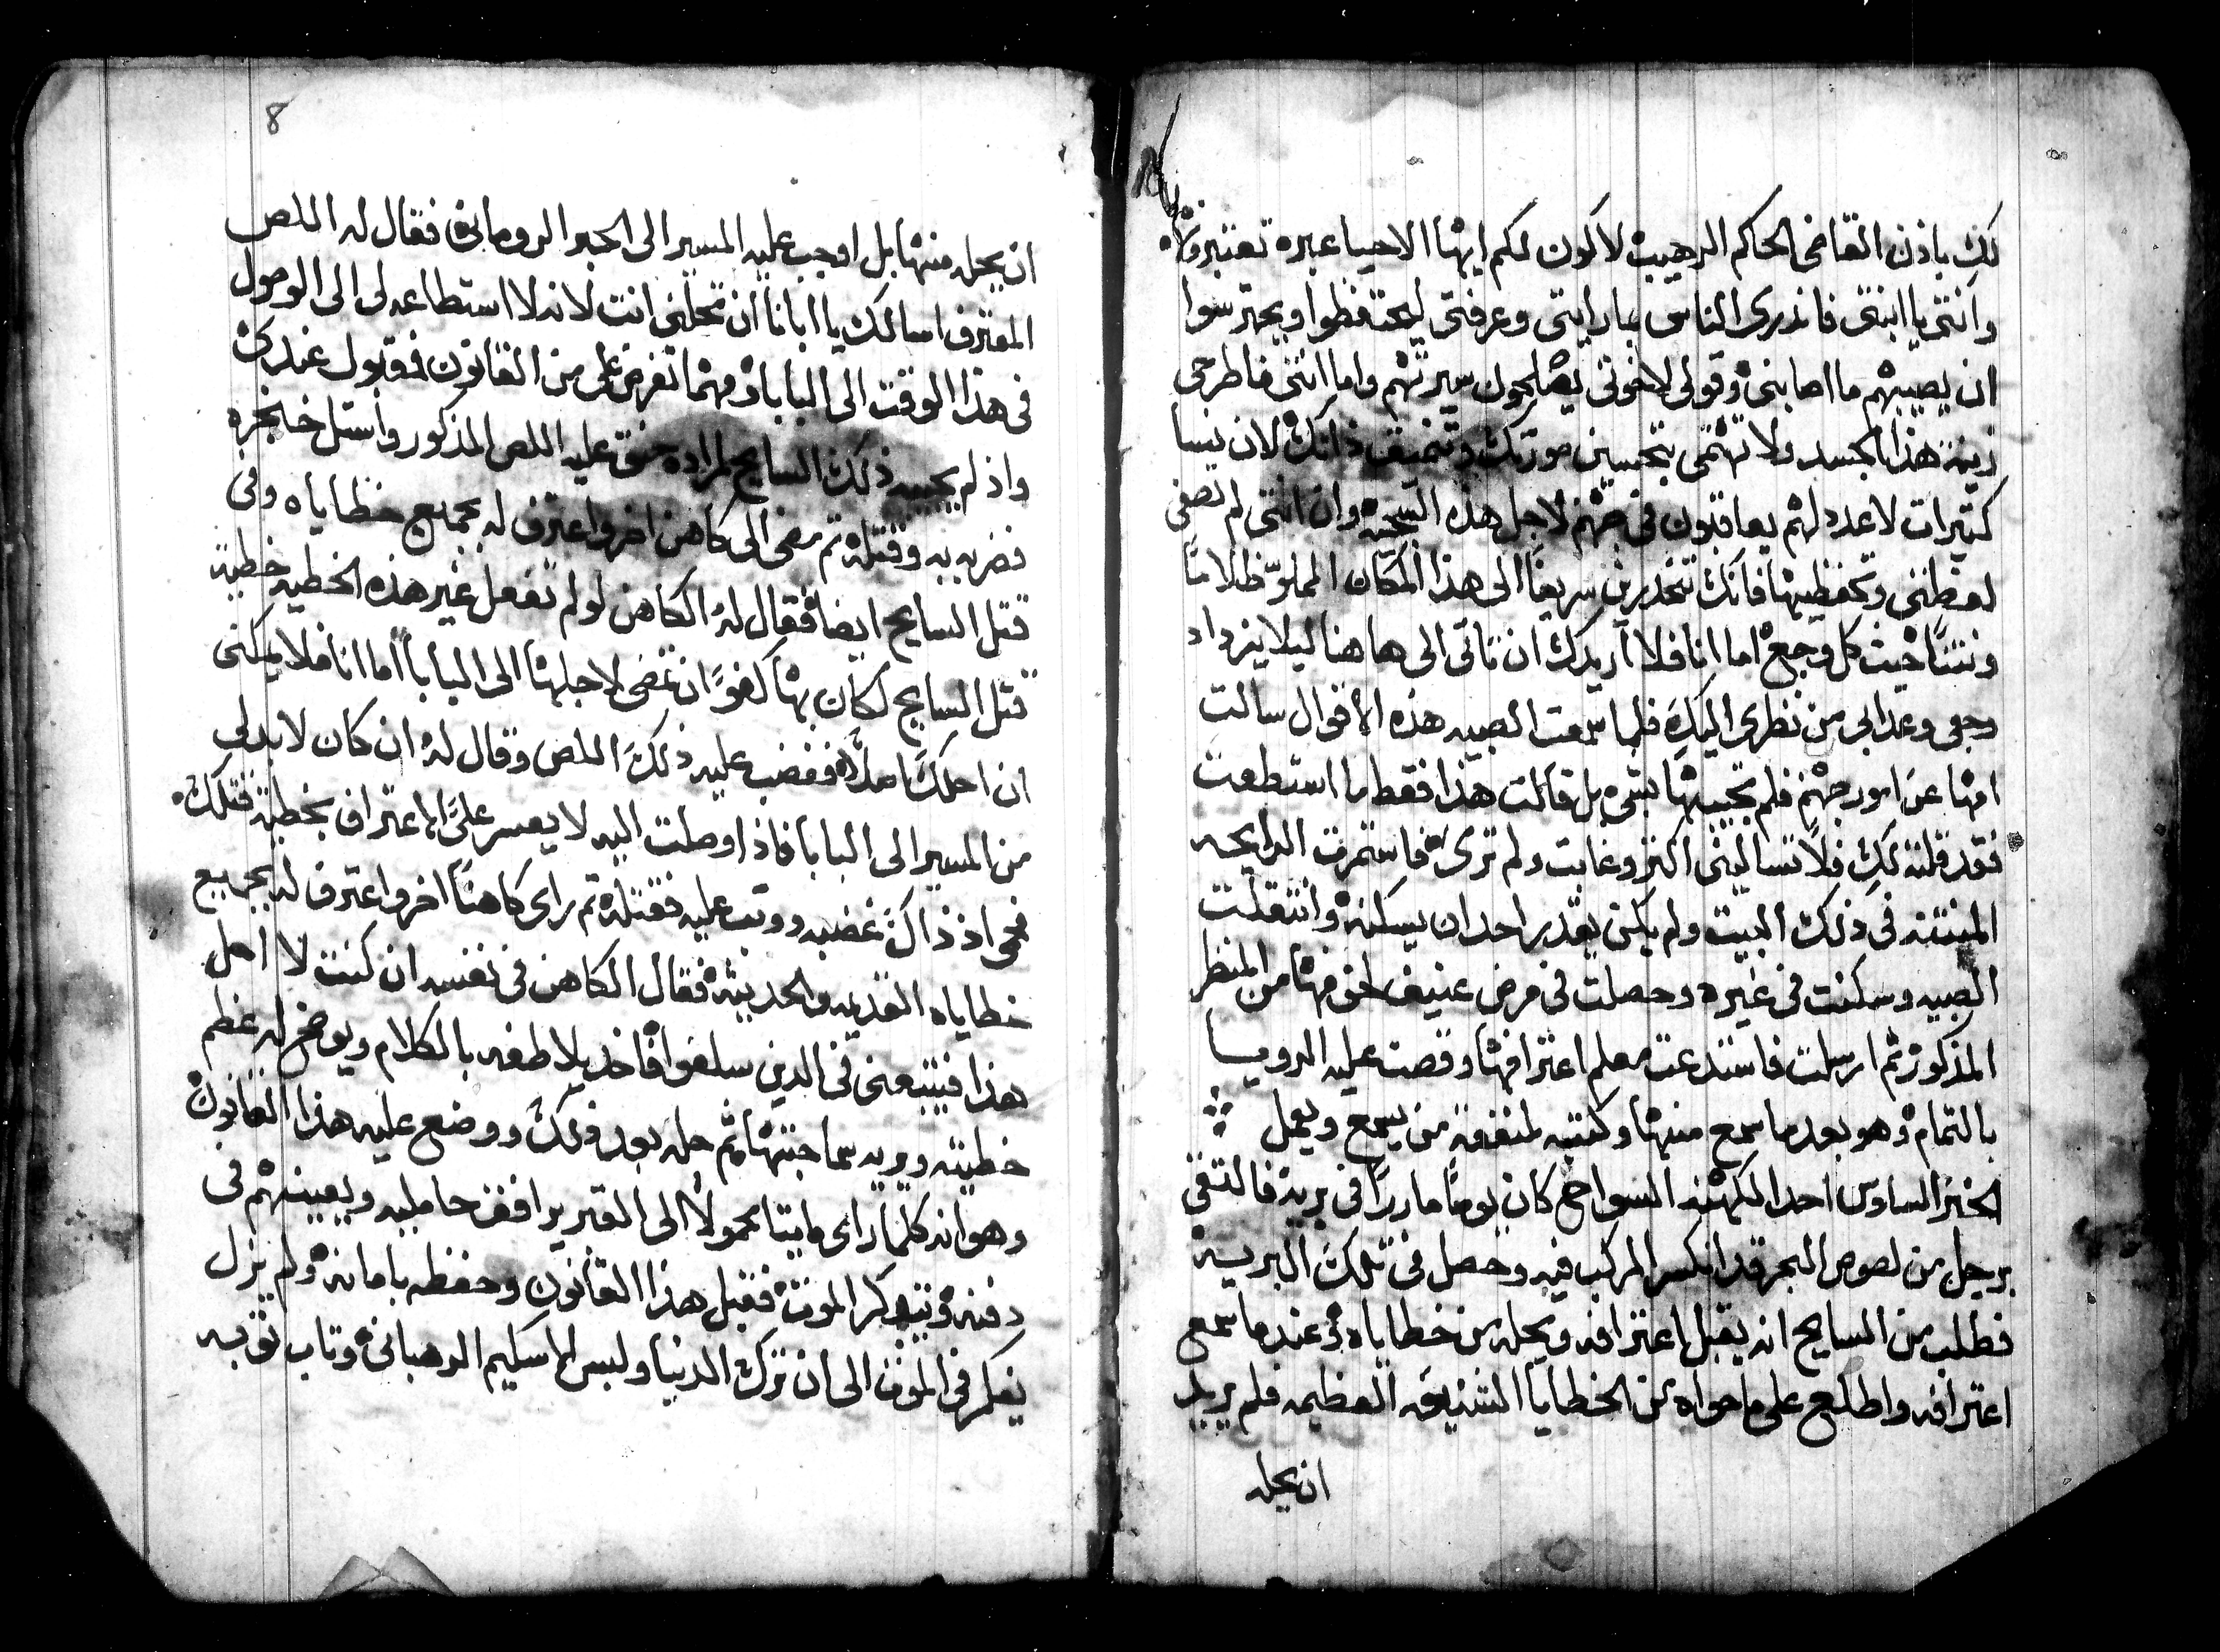 لكِ باذن القاضى الحاكم الرهيب لاكون لكم ايها الاحيا عبره تعتبرونها
وانتى يا ابنتى فانذرى الناس بما رايتى وعرفتى ليحتفظوا ويحترسوا
ان يصيبهم ما اصابنى وقولى لاخوتى يصلحون سيرتهم واما انتى فاطرحى
زينة هذا الجسد ولا تهتمى بتحسين صورتك وتنميق ذاتك لان نسا
كثيرات لا عدد لهم يعاقبون فى جهنم لاجل هذه السجيه وان انتى لم تصغى
لعظتى وتحفظيها فانك تنحدرين سريعاً الى هذا المكان المملوّ ظلاماً
ونتناً حيث كل وجع اما انا فلا اريدك ان تاتى الى هاهنا ليلا يزداد
وجعى وعذابى من نظرى اليكِ فلما سمعت الصبيه هذه الاقوال سالت
امها عن امور جهنم فلم تجيبها بشى بل قالت هذا فقط ما استطعت
فقد قلته لكِ فلا تسالينى اكثر وغابت ولم ترى فاستمرت الرايحه
المنتنه فى ذلك البيت ولم يكن يقدر احد ان يسكنه وانتقلت
الصبيه وسكنت فى غيره وحصلت فى مرض عنيف لخوفها من المنظر
المذكور ثم ارسلت فاستدعت معلم اعترافها وقصت عليه الرويا
بالتمام وهو بعد ما سمع منها وكتبه لمنفعة من يسمع ويعمل
الخبر السادس احد الكهنه السواح كان يوماً ماررًا فى برية فالتقى
برجل من لصوص البحر قد انكسر المركب فيه وحصل فى تلك البريه
فطلب من السايح انه يقبل اعترافه ويحله من خطاياه وعندما سمع
اعترافه واطلع على ما حواه من الخطايا الشنيعه العظيمه فلم يريد
ان يحله
8
ان يحله منها بل اوجب عليه المسير الى الحبر الرومانى فقال له اللص
المعترف اسالك يا ابانا ان تحلنى انت لانه لا استطاعه لى الى الوصول
فى هذا الوقت الى البابا ومهما تفرض على من القانون فقبول عندى
واذ لم يجيبه ذلك السايح لمراده حنق عليه اللص المذكور واستل خنجره
فضربه به وقتله ثم مضى الى كاهن اخر واعترف له بجميع خطاياه وفى
قتل السايح ايضا فقال له الكاهن لو لم تفعل غير هذه الخطيه خطية
قتل السايح لكان بها كفوًا ان تمضى لاجلها الى البابا اما انا فلا يمكنى
ان احلك اصلاً فغضب عليه ذلك اللص وقال له ان كان لا بد لى
من المسير الى البابا فاذا وصلت اليه لا يعسر علىَّ الاعتراف بخطية قتلك
فحمى اذ ذاك غضبه ووثب عليه فقتله ثم راى كاهناً اخر واعترف له بجميع
خطاياه القديمه والحديثه فقال الكاهن فى نفسه ان كنت لا احل
هذا فيتبعنى فى الذين سلفوا فاخذ يلاطفه بالكلام ويوضح له عظم
خطيته ويريه سماجتها ثم حله بعد ذلك ووضع عليه هذا القانون
وهو انه كلما راى ميتا محمولاً الى القبر يرافق حامليه ويعينهم فى
دفنه ويتذكر الموت فقبل هذا القانون وحفظه بامانه ولم يزل
يفكر فى الموت الى ان ترك الدنيا ولبس الاسكيم الرهبانى وتاب توبه